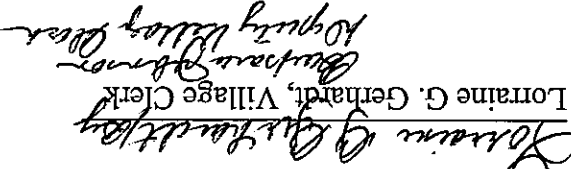 Lorraine G Gerhardt by
Lorraine G. Gerhardt, Village Clerk
Johnson
Deputy Village Clerk